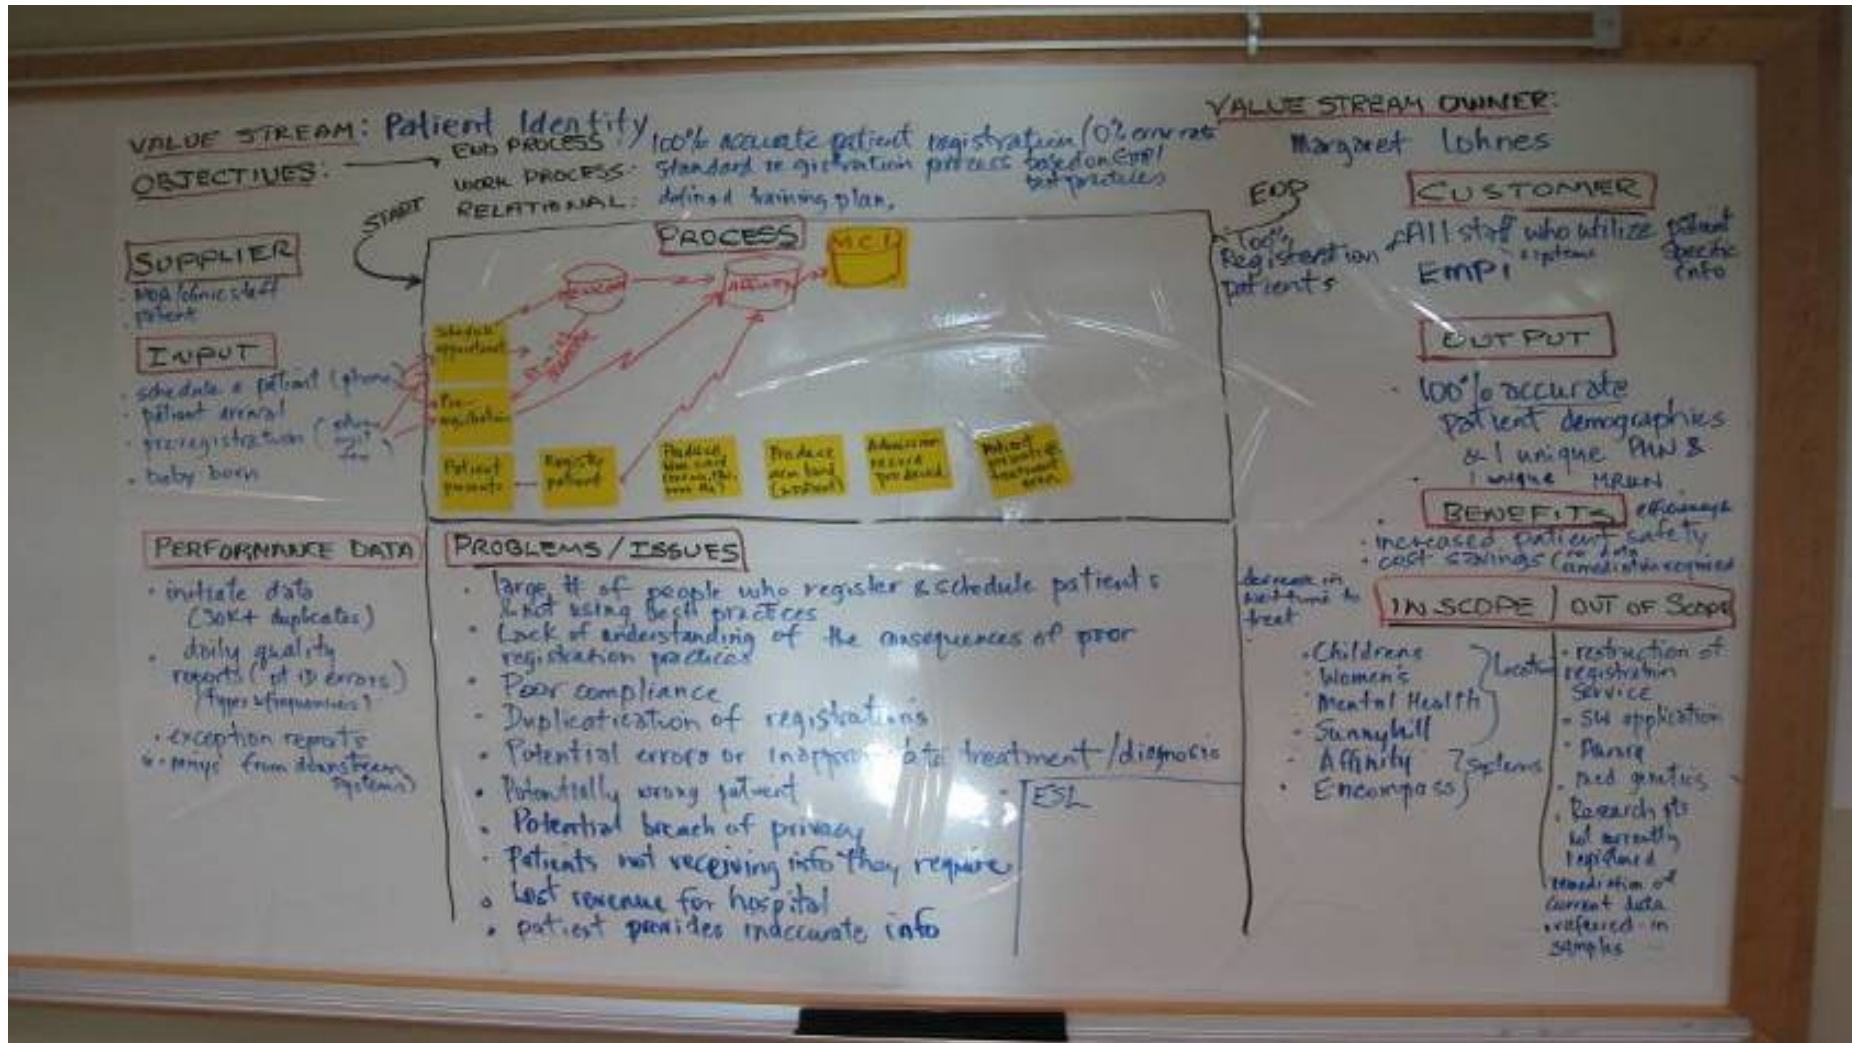 VALUE STREAM: Patient Identity
OBJECTIVES:
END PROCESS: 100% accurate patient registration / 0% error rate
WORK PROCESS: Standard registration process based on EMPI
best practices
RELATIONAL: defined training plan.
VALUE STREAM OWNER:
Margaret Lohnes
START
END
SUPPLIER
MOA/clinic staff
patient
INPUT
· schedule a patient (phone)
· patient arrival
· preregistration (
· baby born
PROCESS
M.C.I.
Affinity
Schedule
appointment
Pre-
registration
Patient
presents
Register
patient
Produce
Produce
arm band
(inpatient)
Admission
record
produced
Patient
presents @
treatment
area
100%
Registration
patients
CUSTOMER
All staff who utilize patient
specific
info
EMPi systems
OUTPUT
· 100% accurate
patient demographics
& 1 unique PHN &
1 unique MRUN
BENEFITS
· increased patient safety
· cost savings (no data
remediation required
decrease in
treat
PERFORMANCE DATA
· initiate data
(30K+ duplicates)
· daily quality
reports (pt ID errors)
· exception reports
from downstream
systems)
PROBLEMS/ISSUES
· large # of people who register & schedule patients
& not using best practices
· Lack of understanding of the consequences of poor
registration practices
· Poor compliance
· Duplicatication of registrations
· Potential errors or inappropriate treatment/diagnosis
· Potentially wrong patient
· Potential breach of privacy
· Patients not receiving info they require
· Lost revenue for hospital
· patient provides inaccurate info
ESL
IN SCOPE | OUT OF SCOPE
· Childrens
· Women's
· Mental Health
· Sunnyhill
· Affinity
· Encompass
systems
· restruction of
registration
service
· SW application
· med genetics
· Research pts
not currently
registered
remediation of
current data
· referred-in
samples